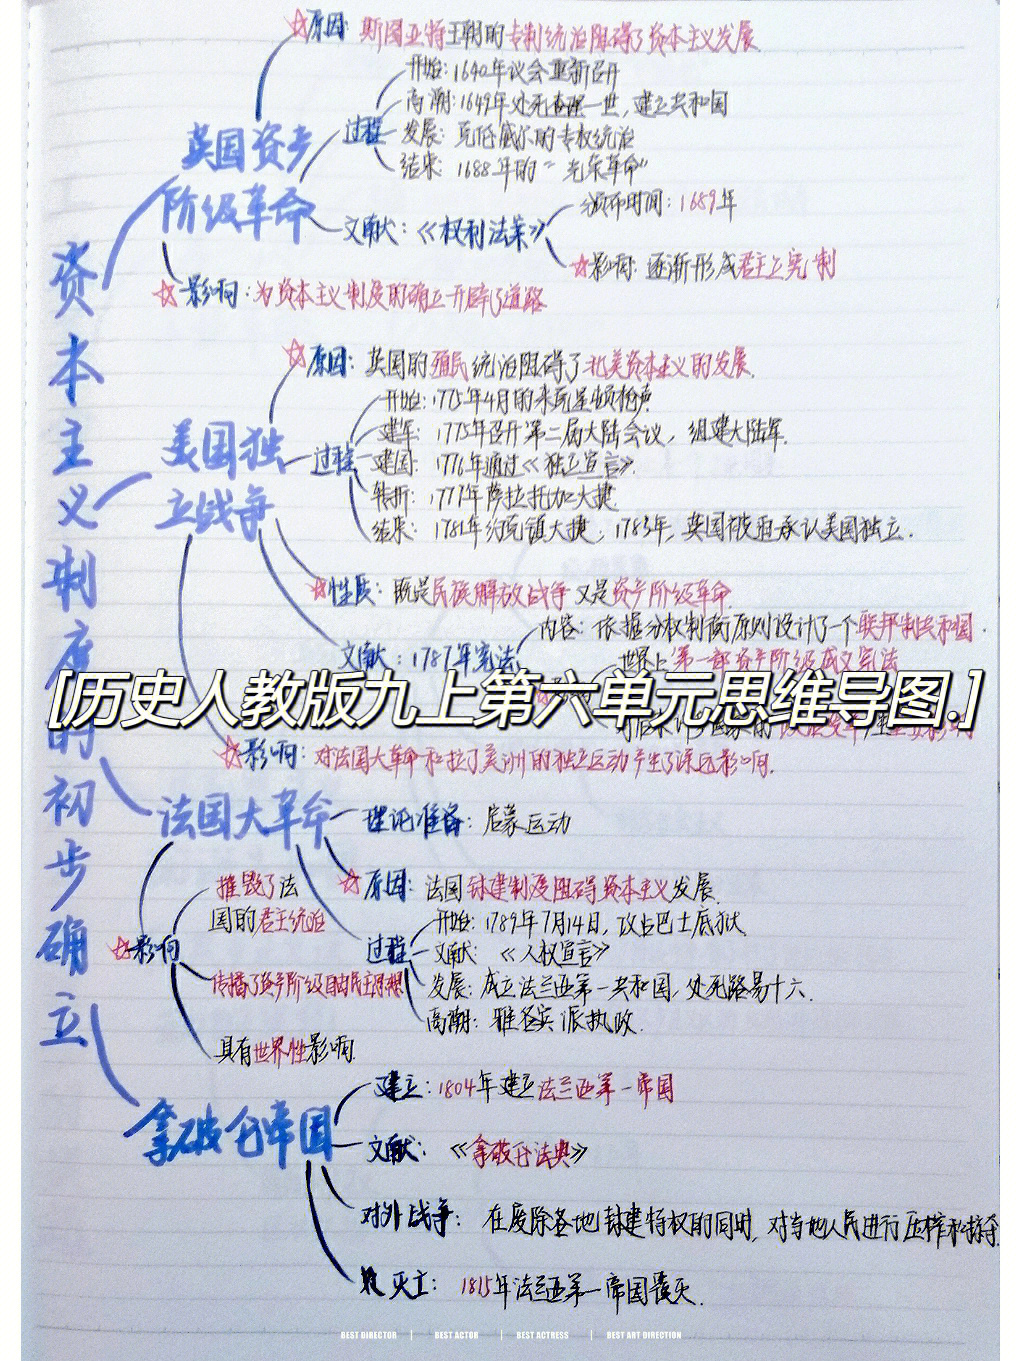 资本主义制度的初步确立
英国资产
阶级革命
☆原因: 斯图亚特王朝的专制统治阻碍了资本主义发展
过程
开始: 1640年议会重新召开
高潮: 1649年处死查理一世, 建立共和国
发展: 克伦威尔的专权统治
结束: 1688年的"光荣革命"
文献: 《权利法案》
颁布时间: 1689年
☆影响: 逐渐形成君主立宪制
☆影响: 为资本主义制度的确立开辟了道路
美国独
立战争
☆原因: 英国的殖民统治阻碍了北美资本主义的发展.
过程
开始: 1775年4月的来克星顿枪声
建军: 1775年召开第二届大陆会议, 组建大陆军.
建国: 1776年通过《独立宣言》.
转折: 1777年萨拉托加大捷.
结束: 1781年约克镇大捷; 1783年, 英国被迫承认美国独立.
☆性质: 既是民族解放战争 又是资产阶级革命.
文献: 1787年宪法
内容: 依据分权制衡原则设计了一个联邦制共和国.
世界上第一部资产阶级成文宪法
[历史人教版九上第六单元思维导图.]
☆影响: 对法国大革命和拉丁美洲的独立运动产生了深远影响.
法国大革命
理论准备: 启蒙运动
☆原因: 法国封建制度阻碍资本主义发展.
过程
开始: 1789年7月14日, 攻占巴士底狱
文献: 《人权宣言》
发展: 成立法兰西第一共和国, 处死路易十六.
高潮: 雅各宾派执政.
☆影响
摧毁了法
国的君主统治
传播了资产阶级自由民主思想
具有世界性影响.
拿破仑帝国
建立: 1804年建立法兰西第一帝国
文献: 《拿破仑法典》
对外战争: 在废除各地封建特权的同时, 对当地人民进行压榨和掠夺.
灭亡: 1815年法兰西第一帝国覆灭.
BEST DIRECTOR | BEST ACTOR | BEST ACTRESS | BEST ART DIRECTION